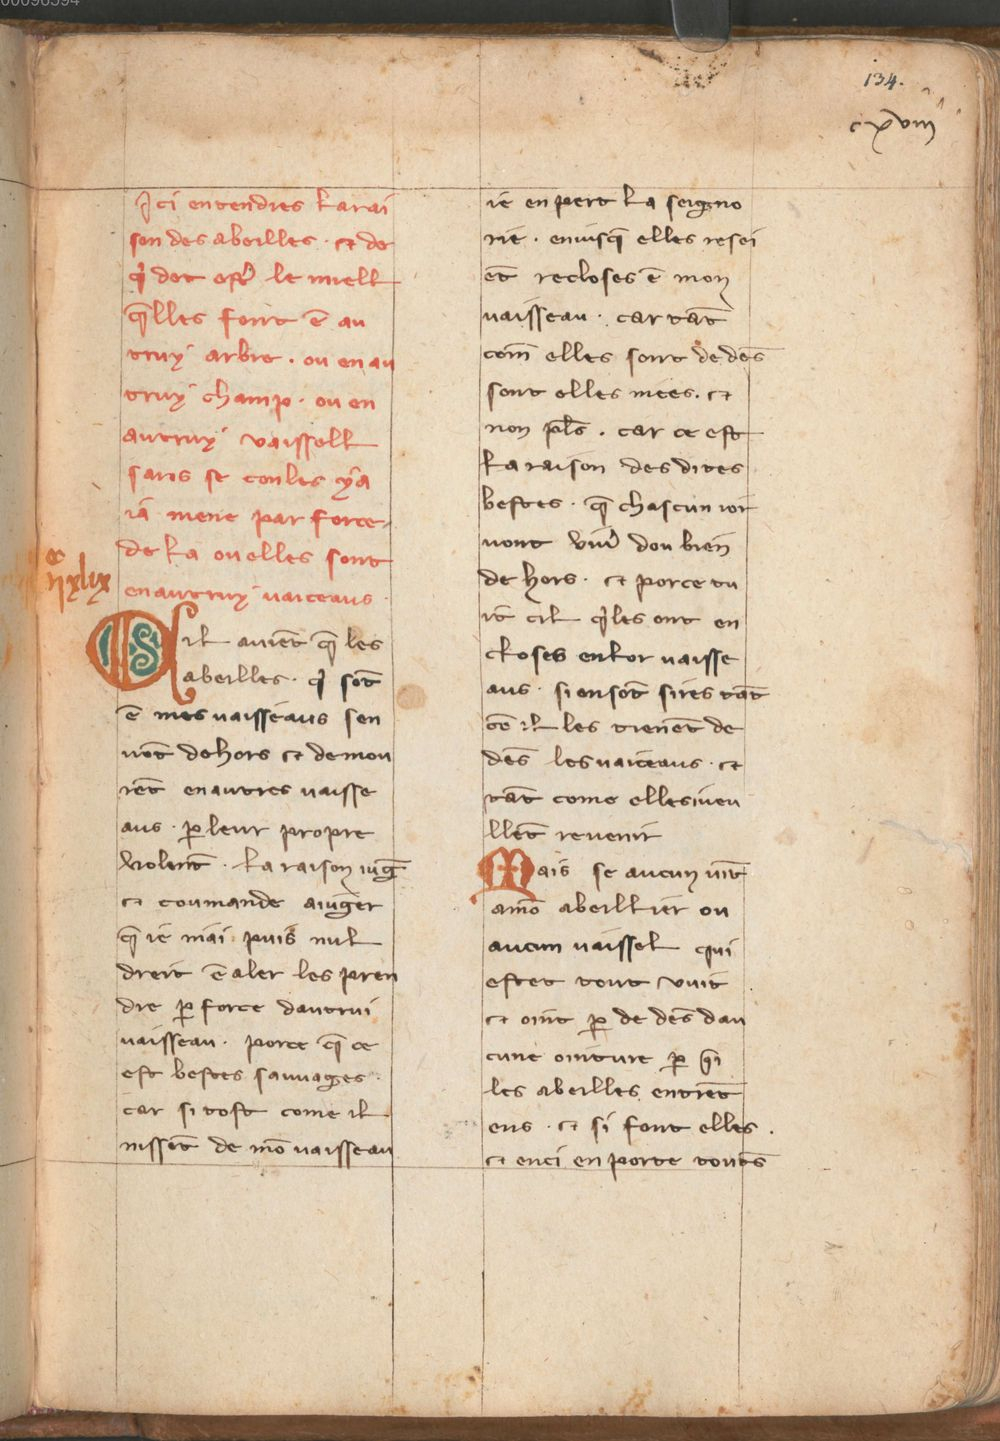 00096594
134.
cxviij
Ici entendres la rai
son des abeilles · et de
q̃ det estr̃ le miell
q̃lles font ẽ au
truy arbre · ou en au
truy champ · ou en
autruy vaissell
sans se con les y a
ia mene par force
de la ou elles sont
en autruy vaiceaus ·
S il auiẽt q̃ les
abeilles · q̃ sõt
ẽ mes vaisseaus sen
uõt dehors et demou
rẽt en autres vaisse
aus · p̱ leur propre
volentẽ · la raison iug̃
et coumande a iuger
q̃ ie mai puis nul
dreit ẽ aler les pren
dre p̱ force dautrui
vaisseau · porce q̃ ce
est bestes sauuages ·
car si tost come il
nissẽt de mõ vaisseau
ie en pert la seigno
rie · en iusq̃ elles resei
ẽt recloses ẽ mon
vaisseau · car tãt
com̃ elles sont de dẽs
sont elles mees · et
non pl̃s · car ce est
la raison des dites
bestes · q̃ chascun ior
uont viur̃ dou bien
de hors · et porce tu
it cil q̃ les ont en
closes en lor vaisse
aus · si en sõt sires tãt
cõ il les tienẽt de
dẽs les vaiceaus · et
tãt come elles i ueu
llẽt reuenir
Mais se aucun uiẽt
a mõ abeillier ou
aucun vaissel qui
estet tout vuit
et oint p̱ de dẽs dau
cune ointure p̱ q̃i
les abeilles entrẽt
ens · et si font elles ·
et enci en porte toutẽs